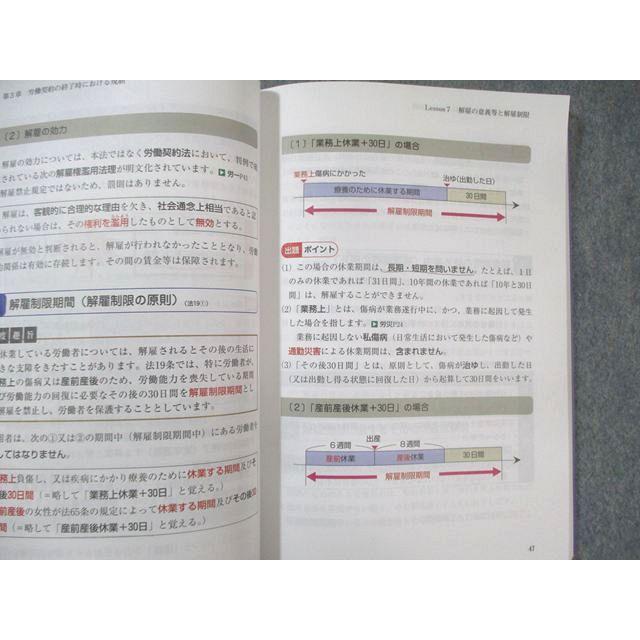 第3章 労働契約の終了時における規制
〔2〕解雇の効力
解雇の効力については、本法ではなく労働契約法において、判例で確
されている次の解雇権濫用法理が明文化されています。▶労一P43
解雇禁止規定ではないため、罰則はありません。
解雇は、客観的に合理的な理由を欠き、社会通念上相当であると認
られない場合は、その権利を濫用したものとして無効とする。
解雇が無効と判断されると、解雇が行われなかったこととなり、労働
約関係は有効に存続します。その間の賃金等は保障されます。
解雇制限期間（解雇制限の原則）(法19①)
趣旨
休業している労働者については、解雇されるとその後の生活に
きな支障をきたすことがあります。法19条では、特に労働者が、
務上の傷病又は産前産後のため、労働能力を喪失している期間
び労働能力の回復に必要なその後の30日間を解雇制限期間とし
解雇を禁止し、労働者を保護することとしています。
用者は、次の①又は②の期間中（解雇制限期間中）にある労働者を
してはなりません。
務上負傷し、又は疾病にかかり療養のために休業する期間及びそ
後30日間（＝略して「業務上休業＋30日」と覚える。）
産前産後の女性が法65条の規定によって休業する期間及びその後30
間（＝略して「産前産後休業＋30日」と覚える。）
Lesson 7 解雇の意義等と解雇制限
〔1〕「業務上休業＋30日」の場合
業務上傷病にかかった
治ゆ(出勤した日)
療養のために休業する期間
30日間
解雇制限期間
出題 ポイント
(1) この場合の休業期間は、長期・短期を問いません。たとえば、1日
のみの休業であれば「31日間」、10年間の休業であれば「10年と30日
間」は、解雇することができません。
(2)「業務上」とは、傷病が業務遂行中に、かつ、業務に起因して発生
した場合を指します。▶労災P24
業務に起因しない私傷病（日常生活において発生した傷病など）や
通勤災害による休業期間は、含まれません。
(3)「その後30日間」とは、原則として、傷病が治ゆし、出勤した日
（又は出勤し得る状態に回復した日）から起算して30日間をいいます。
〔2〕「産前産後休業＋30日」の場合
出産
6週間
8週間
産前休業
産後休業
30日間
解雇制限期間
47